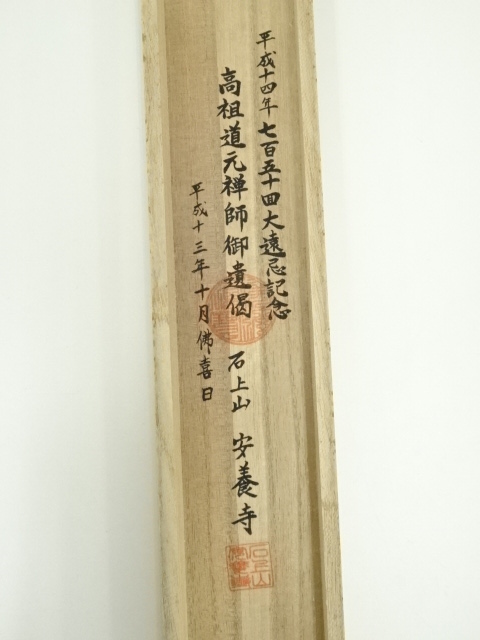 平成十四年七百五十回大遠忌記念
高祖道元禅師御遺偈 石上山 安養寺
平成十三年十月佛喜日